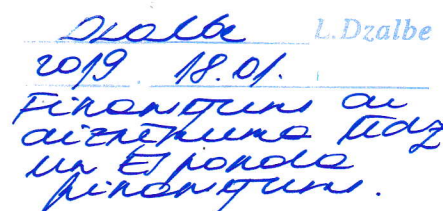 Dzalbe L.Dzalbe
2019 18.01.
Finansējums ar
aizņēmuma līdz
un ES fonda
finansējums.